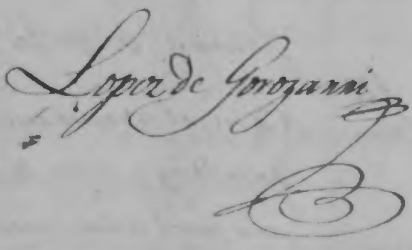 Lopez de Gorozarri